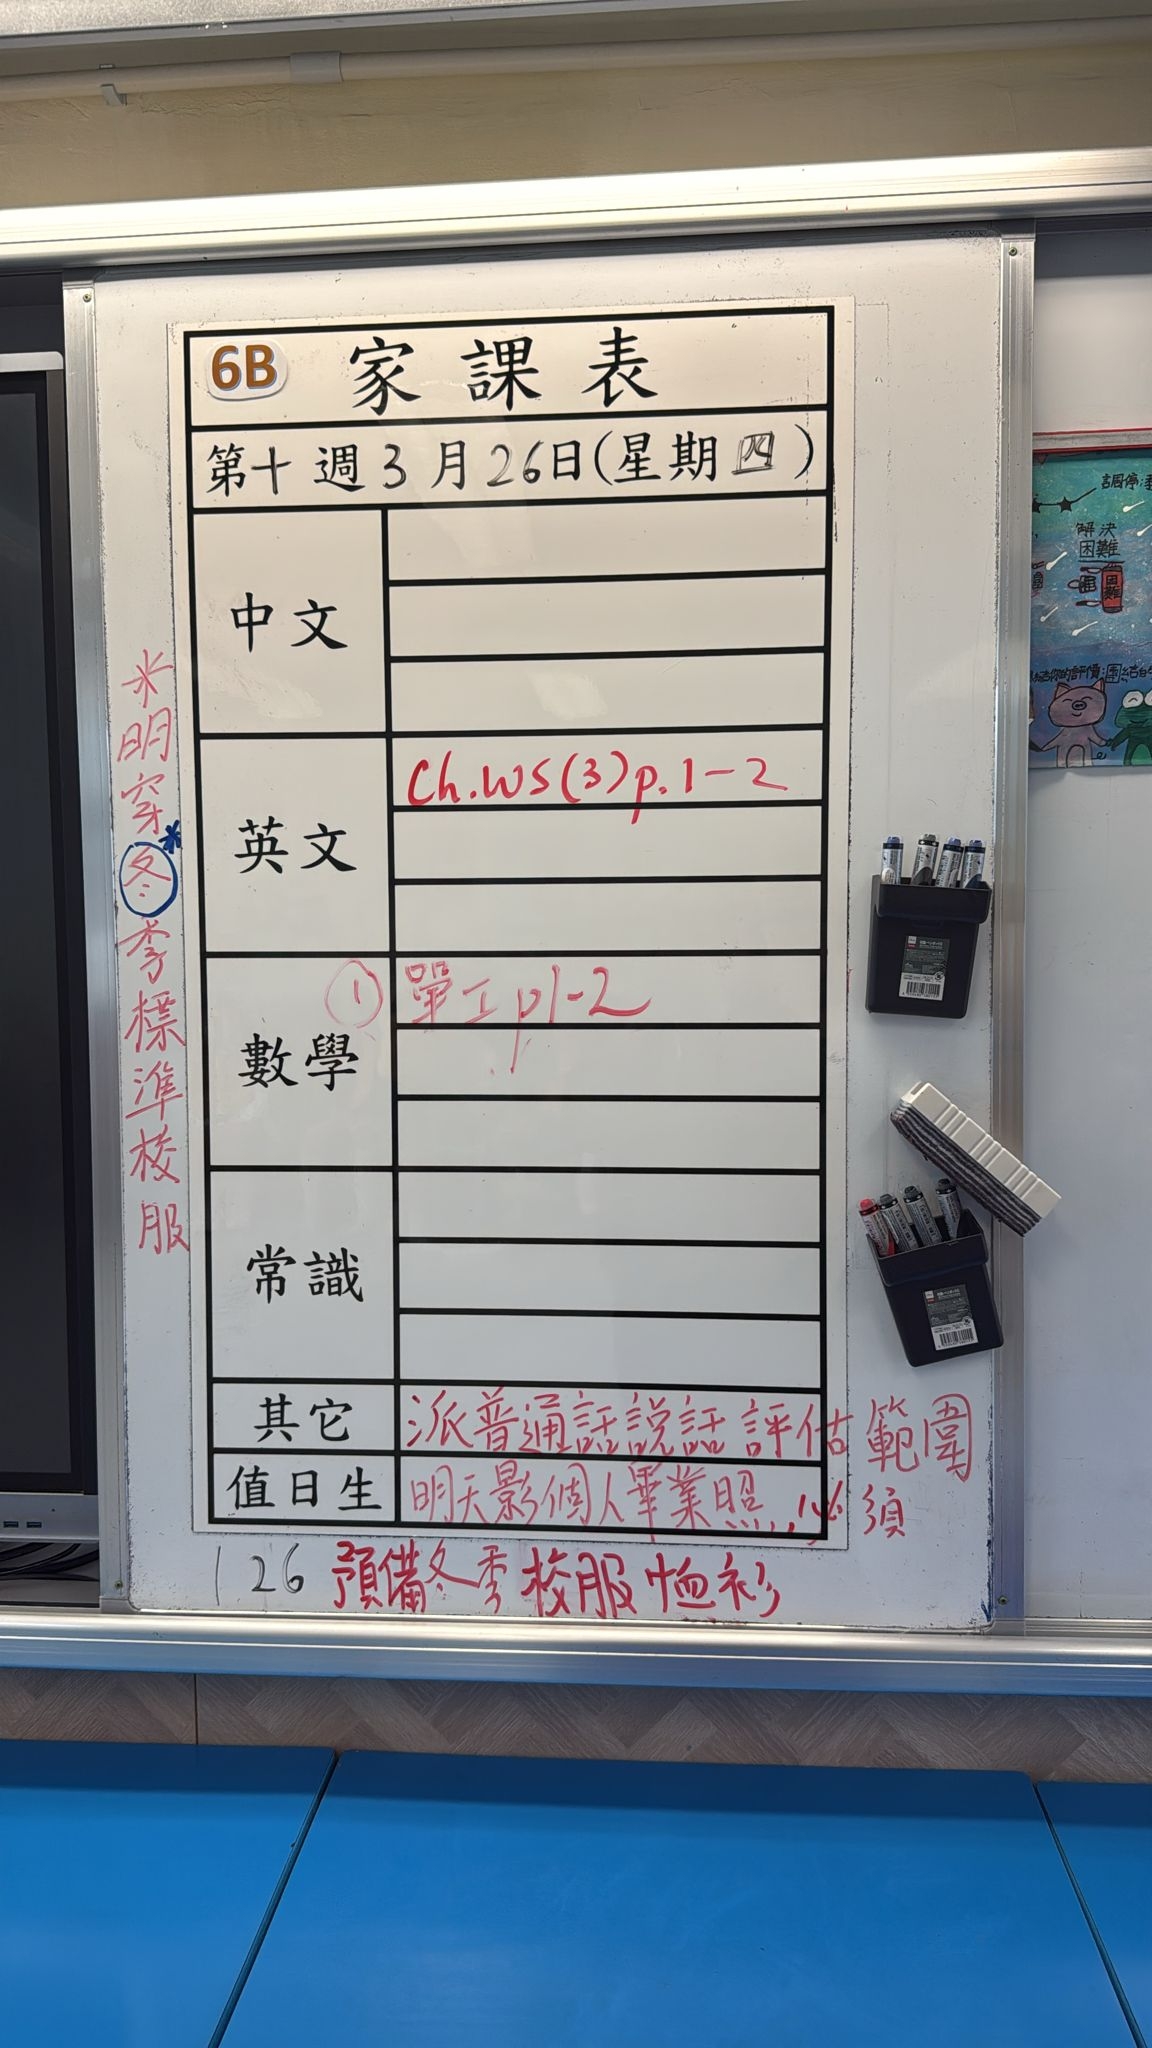 6B 家課表
第十週3月26日(星期四)
中文
英文
Ch.WS(3)p.1-2
數學
① 單工 p1-2
常識
其它
派普通話説話評估範圍
值日生
明天影個人畢業照,,,必須
1 26 預備冬季校服恤衫
*明穿冬*季標準校服
調停:
解決
困難
困難
你的評價:團結